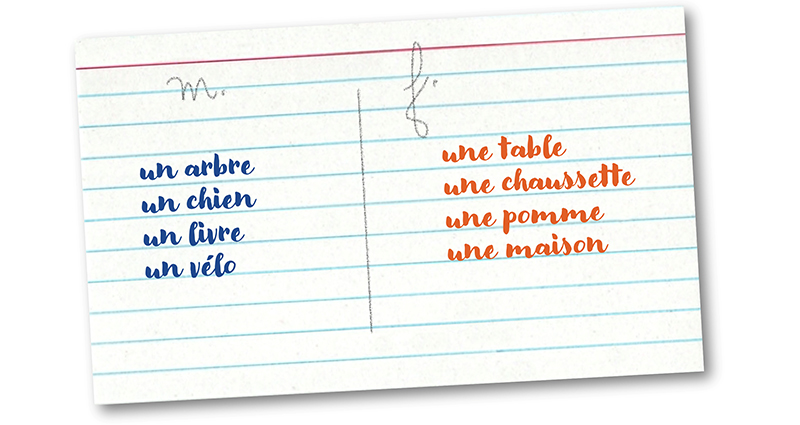 m.
f.
un arbre
un chien
un livre
un vélo
une table
une chaussette
une pomme
une maison